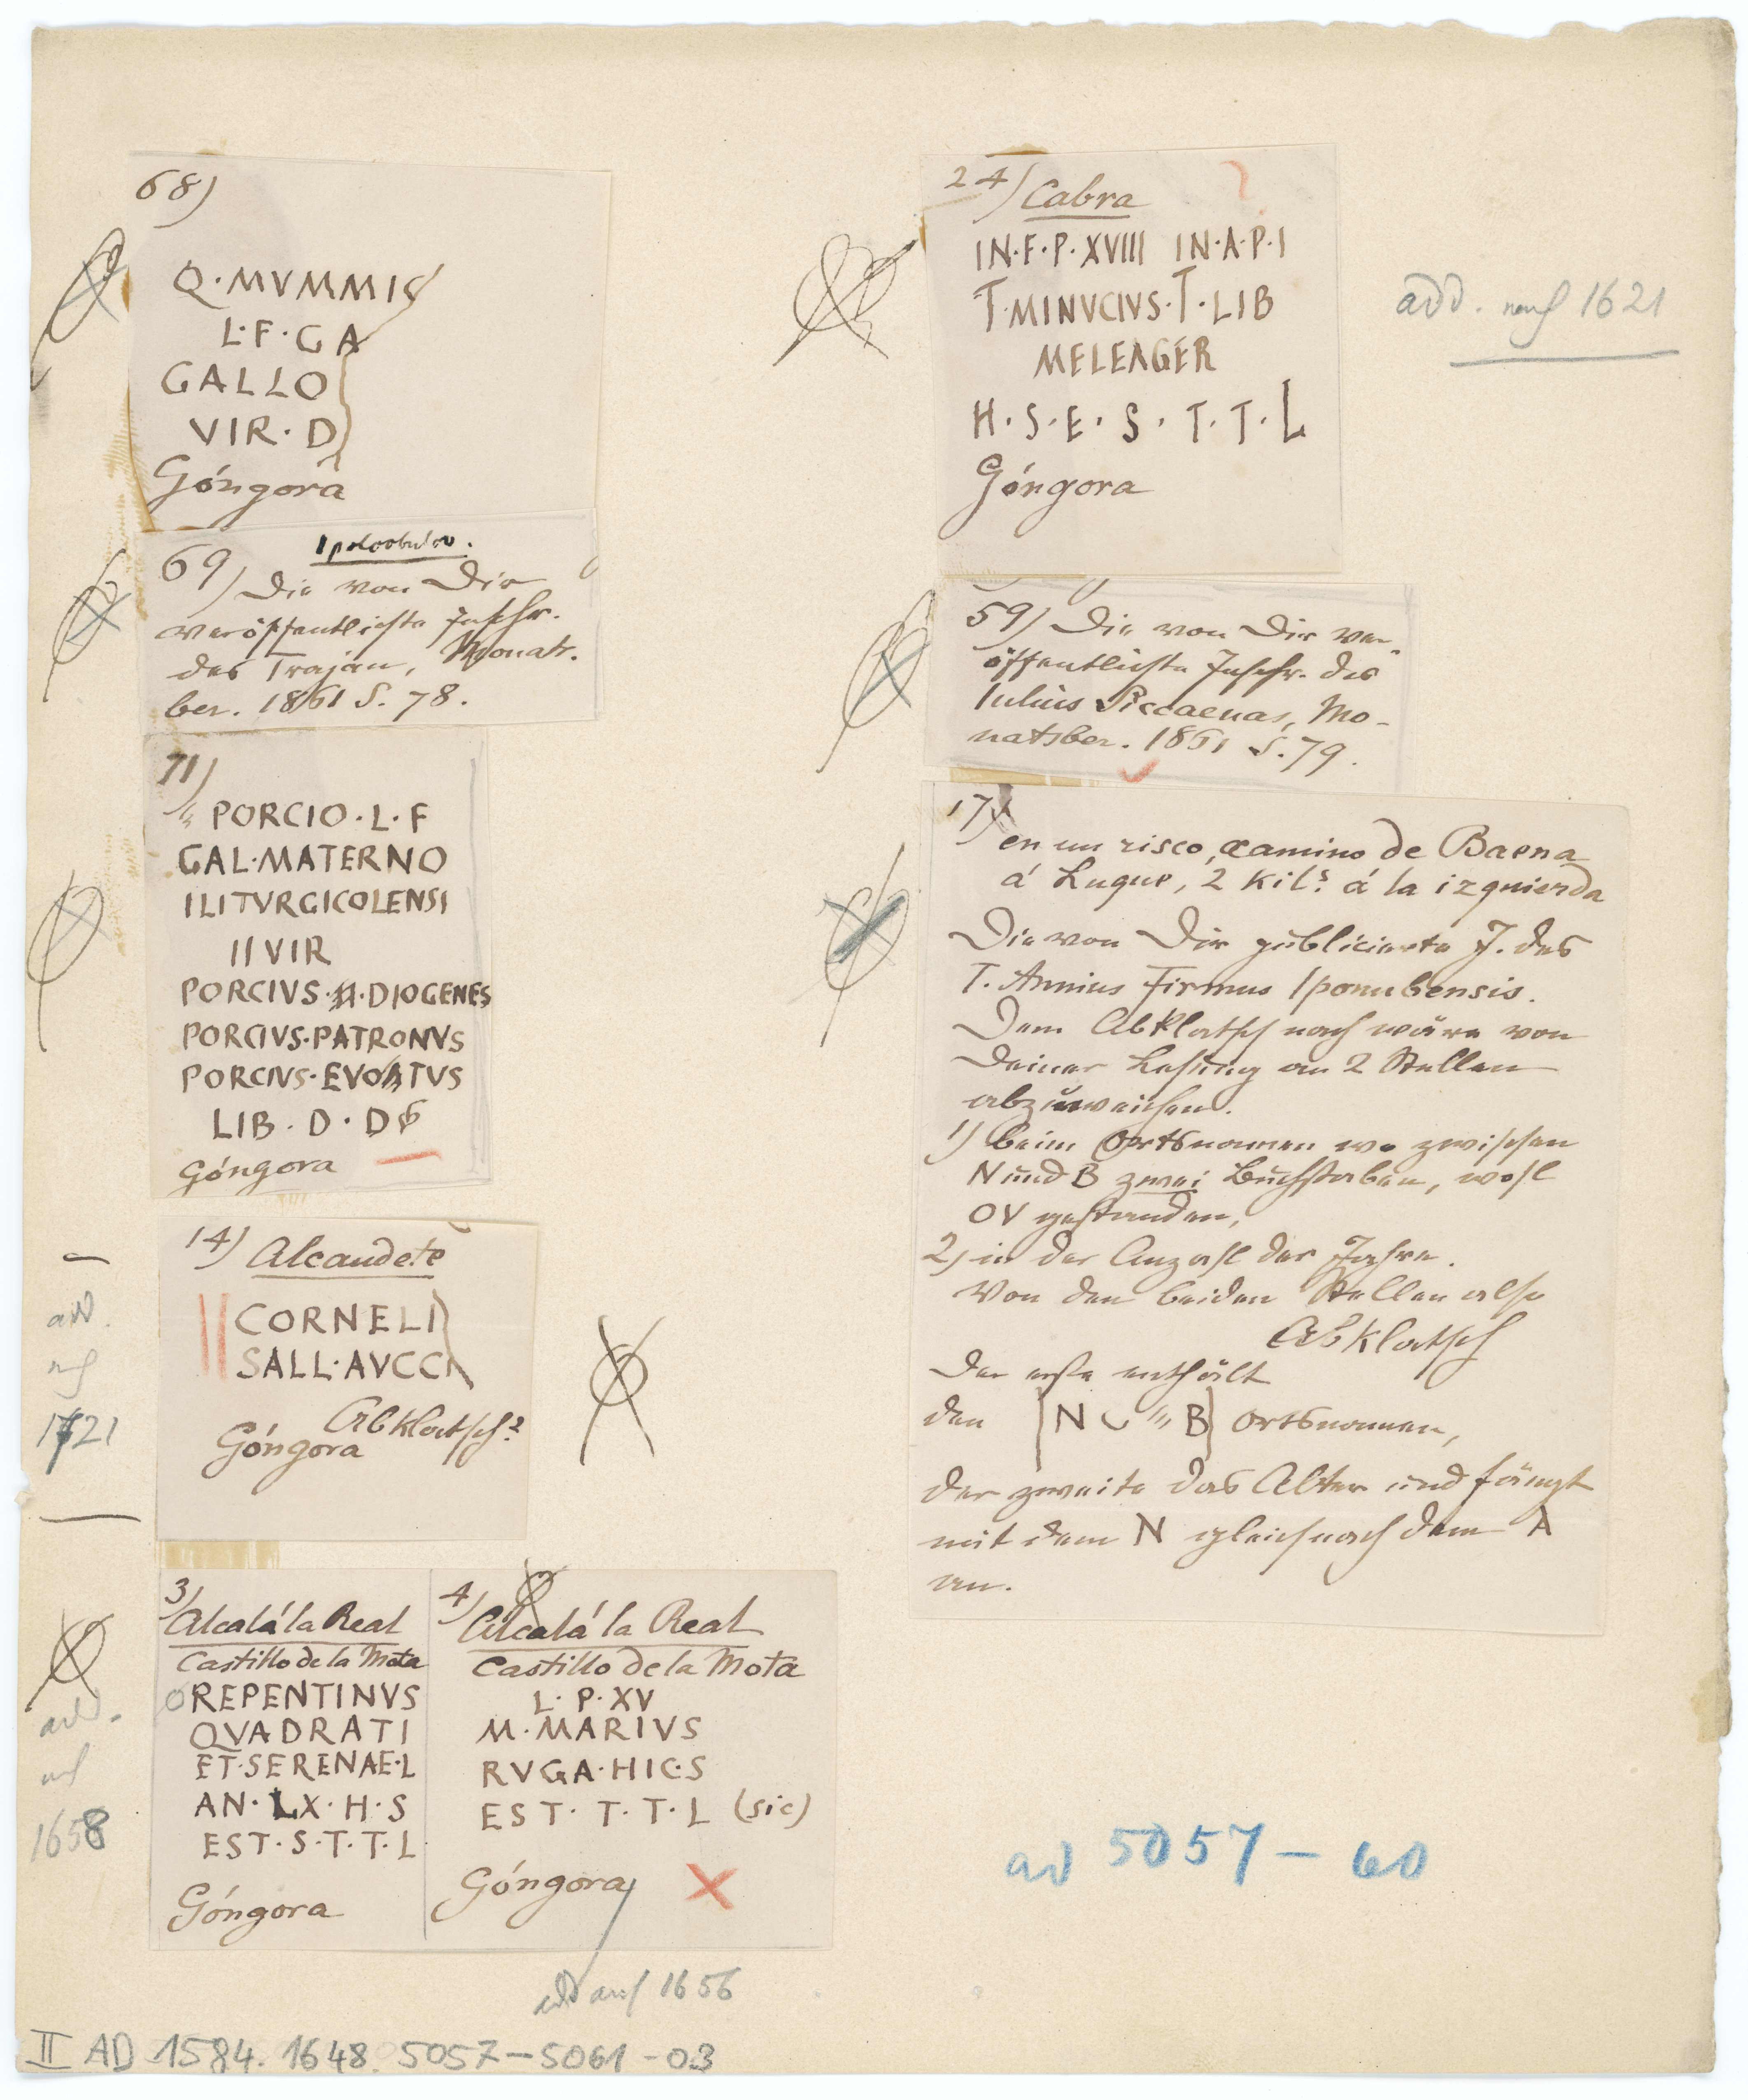 68)
Q·MVMMIO
L·F·GA
GALLO
VIR·D
Góngora
69) Ipolcobulco.
Die von Dir
veröffentlichte Inschr.
des Trajan, Monats-
ber. 1861 S. 78.
71)
PORCIO·L·F
GAL·MATERNO
ILITVRGICOLENSI
II VIR
PORCIVS· ·DIOGENES
PORCIVS·PATRONVS
PORCIVS·EVOATVS
LIB·D·D
Góngora
14) Alcaudete
CORNELI
SALL·AVCCA
Abklatsch?
Góngora
add.
nach
1721
3)
Alcalá la Real
Castillo de la Mota
REPENTINVS
QVADRATI
ET·SERENAE·L
AN·LX·H·S
EST·S·T·T·L
Góngora
add.
nach
1658
4)
Alcalá la Real
Castillo de la Mota
L·P·XV
M·MARIVS
RVGA·HIC·S
EST·T·T·L (sic)
Góngora
add nach 1656
24) Cabra
IN·F·P·XVIII IN·A·P·I
T·MINVCIVS·T·LIB
MELEAGER
H·S·E·S·T·T·L
Góngora
add. nach 1621
59) Die von Dir ver-
öffentlichte Inschr. des
Iulius Siccaenas, Mo-
natsber. 1861 S. 79.
17)
en un risco, camino de Baena
á Luque, 2 Kils. á la izquierda
Die von Dir publicierte I. des
T. Annius Firmus Iponubensis.
Dem Abklatsch nach wäre von
Deiner Lesung an 2 Stellen
abzuweichen.
1) beim Ortsnamen wo zwischen
N und B zwei Buchstaben, wohl
OV gestanden,
2) in der Anzahl der Jahre.
Von den beiden Stellen also
Abklatsch
Der erste enthält
den N B Ortsnamen,
der zweite das Alter und fängt
mit dem N gleich nach dem A
an.
ad 5057–60
II AD 1584. 1648. 5057–5061-03